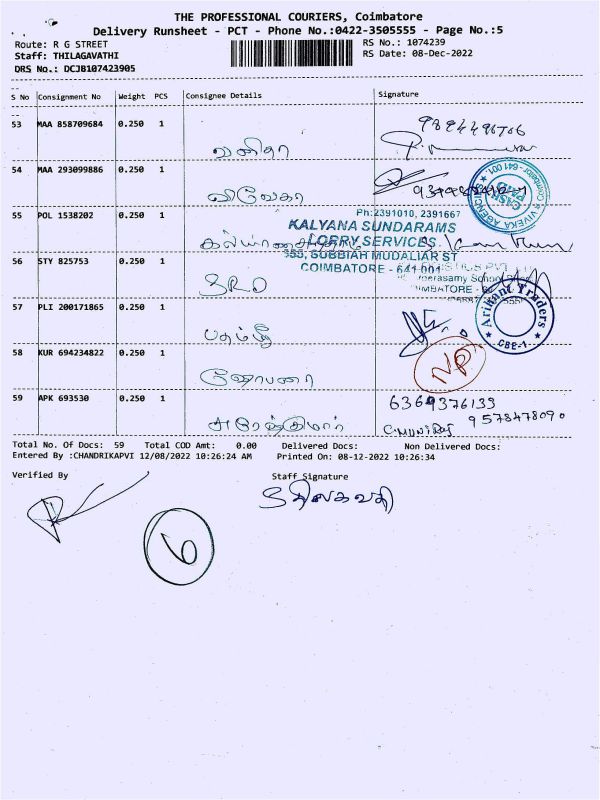 THE PROFESSIONAL COURIERS, Coimbatore
Delivery Runsheet - PCT - Phone No.:0422-3505555 - Page No.:5
Route: R G STREET
RS No.: 1074239
Staff: THILAGAVATHI
RS Date: 08-Dec-2022
DRS No.: DCJB107423905
S No Consignment No Weight PCS Consignee Details Signature
53 MAA 858709684 0.250 1
வனிதா
54 MAA 293099886 0.250 1
விவேகா
VIVEKA AGENCIES
CASH PAID
Coimbatore - 641 001.
55 POL 1538202 0.250 1
Ph:2391010, 2391667
KALYANA SUNDARAMS
LORRY SERVICES
355, SUBBIAH MUDALIAR ST
COIMBATORE - 641 001
56 STY 825753 0.250 1
SRD
57 PLI 200171865 0.250 1
Arihant Traders
CBE-1
58 KUR 694234822 0.250 1
NP
59 APK 693530 0.250 1
6369376133
9578478090
Total No. Of Docs: 59 Total COD Amt: 0.00 Delivered Docs: Non Delivered Docs:
Entered By :CHANDRIKAPVI 12/08/2022 10:26:24 AM Printed On: 08-12-2022 10:26:34
Verified By Staff Signature
திலகவதி
6